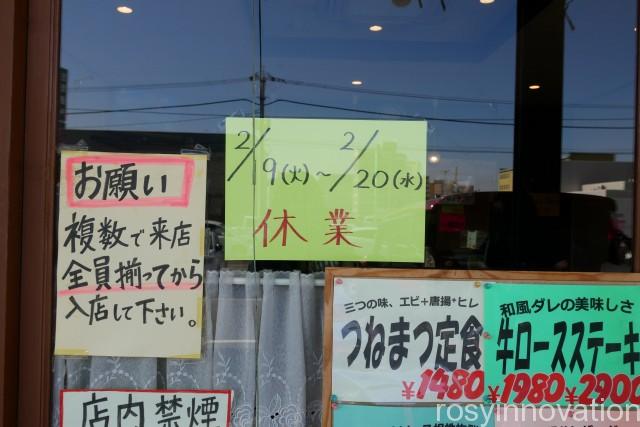 お願い
複数で来店
全員揃ってから
入店して下さい。
2/19(火)～2/20(水)
休業
店内禁煙
三つの味、エビ+唐揚+ヒレ
つねまつ定食
¥1480
和風ダレの美味しさ
牛ロースステーキ
¥1980 ¥2900
rosyinnovation